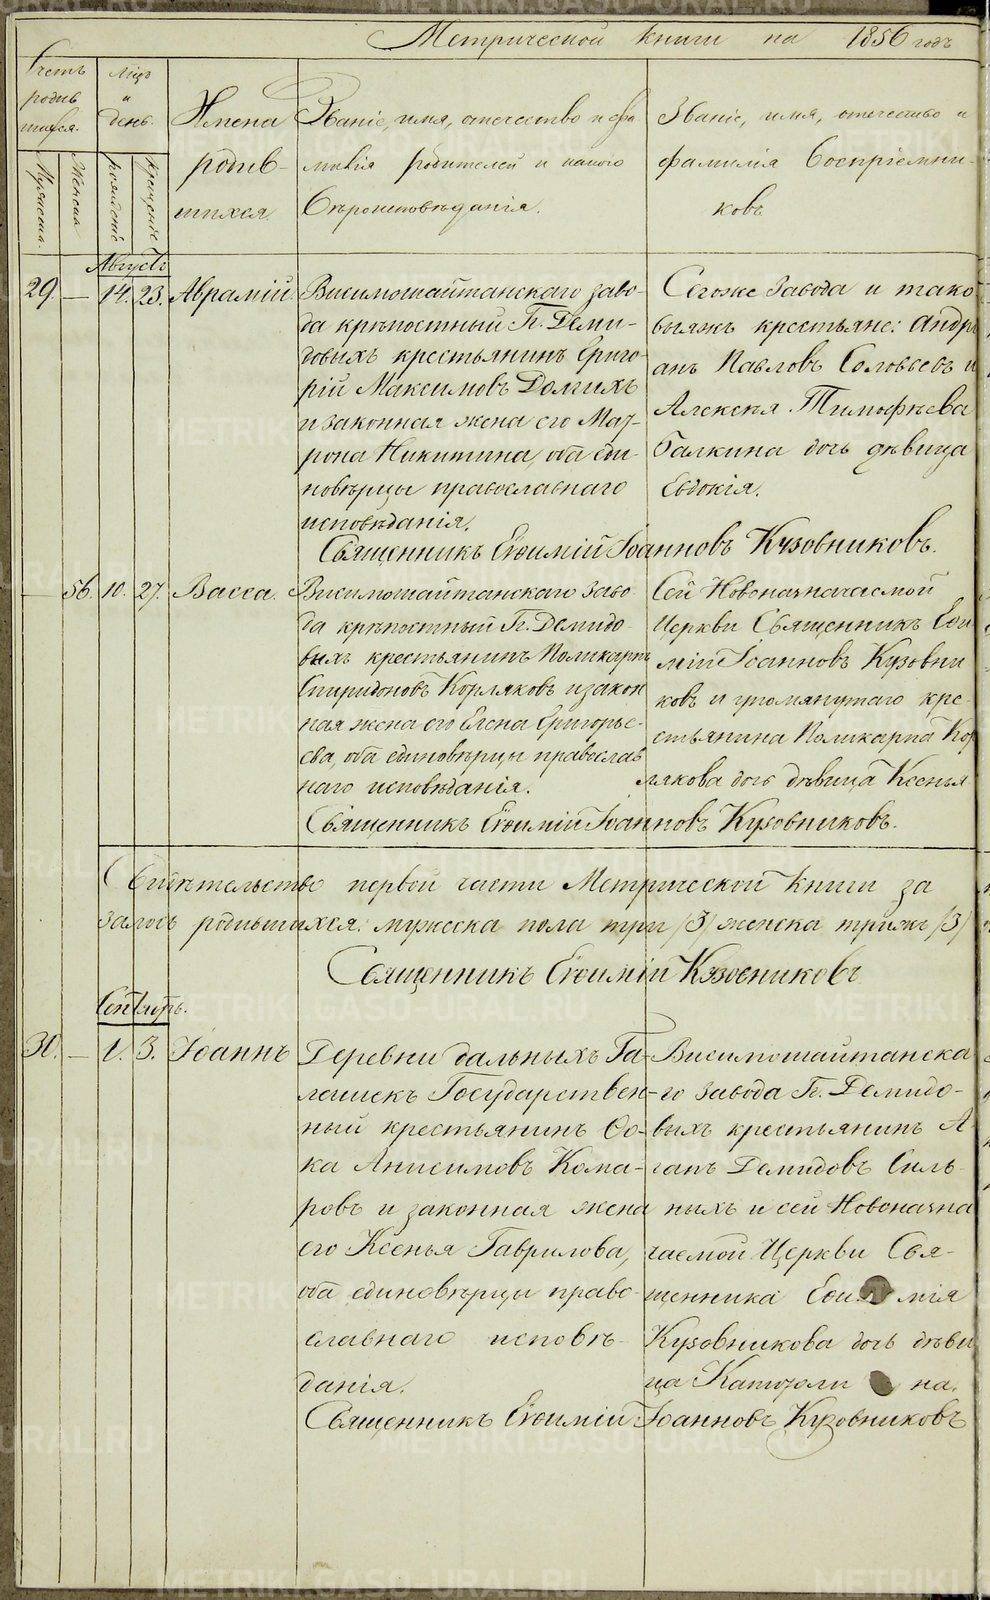 Метрической книги на 1856 годъ
Счетъ родив шихся.
Мужеска.
Женска
Мѣсяцъ и день.
рожденія
крещенія
Имена родив- шихся.
Званіе, имя, отечество и фа
милія родителей и какого
вѣроисповѣданія.
Званіе, имя, отечество и
фамилія воспріемни-
ковъ
Августъ
29. — 14. 23. Аврамій.
Висимошайтанскаго заво-
да крѣпостный Гг. Деми-
довыхъ крестьянинъ Григо-
рій Максимовъ Долгихъ
и законная жена его Мат-
рона Никитина, оба еди-
новѣрцы православнаго
исповѣданія.
Сегоже завода и тако
выяжъ крестьяне: Андрі
анъ Павловъ Соловьевъ и
Алексѣя Тимофѣева
Галкина дочь дѣвица
Евдокія.
Священникъ Евѳимій Іоанновъ Кузовниковъ.
— 56. 10. 27. Васса.
Висимошайтанскаго заво
да крѣпостный Гг. Демидо-
выхъ крестьянинъ Поликарпъ
Спиридоновъ Корляковъ и закон
ная жена его Елена Григорье-
ва, оба единовѣрцы православ
наго исповѣданія.
Сей Новоназначаемой
Церкви Священникъ Еѳи
мій Іоанновъ Кузовни
ковъ и упомянутаго кре-
стьянина Поликарпа Кор
лякова дочь дѣвица Ксенья
Священникъ Евѳимій Іоанновъ Кузовниковъ.
Свидѣтельство первой части Метрической книги за
залось родившихся: мужеска пола три /3/ женска трижъ /3/
Священникъ Евѳимій Кузовниковъ
Сентябрь.
30. — 1. 3. Іоаннъ
Деревни дальныхъ Га-
лашекъ Государствен-
ный крестьянинъ Фо-
ка Анисимовъ Кома-
ровъ и законная жена
его Ксенья Гаврилова,
оба единовѣрцы право-
славнаго исповѣ-
данія.
Висимошайтанска
го завода Гг. Демидо-
выхъ крестьянинъ А
гапъ Демидовъ Силь-
ныхъ и сей Новоназна
чаемой Церкви Свя-
щенника Еѳи мія
Кузовникова дочь дѣви
ца на.
Священникъ Евѳимій Іоанновъ Кузовниковъ
METRIKI.GASO-URAL.RU